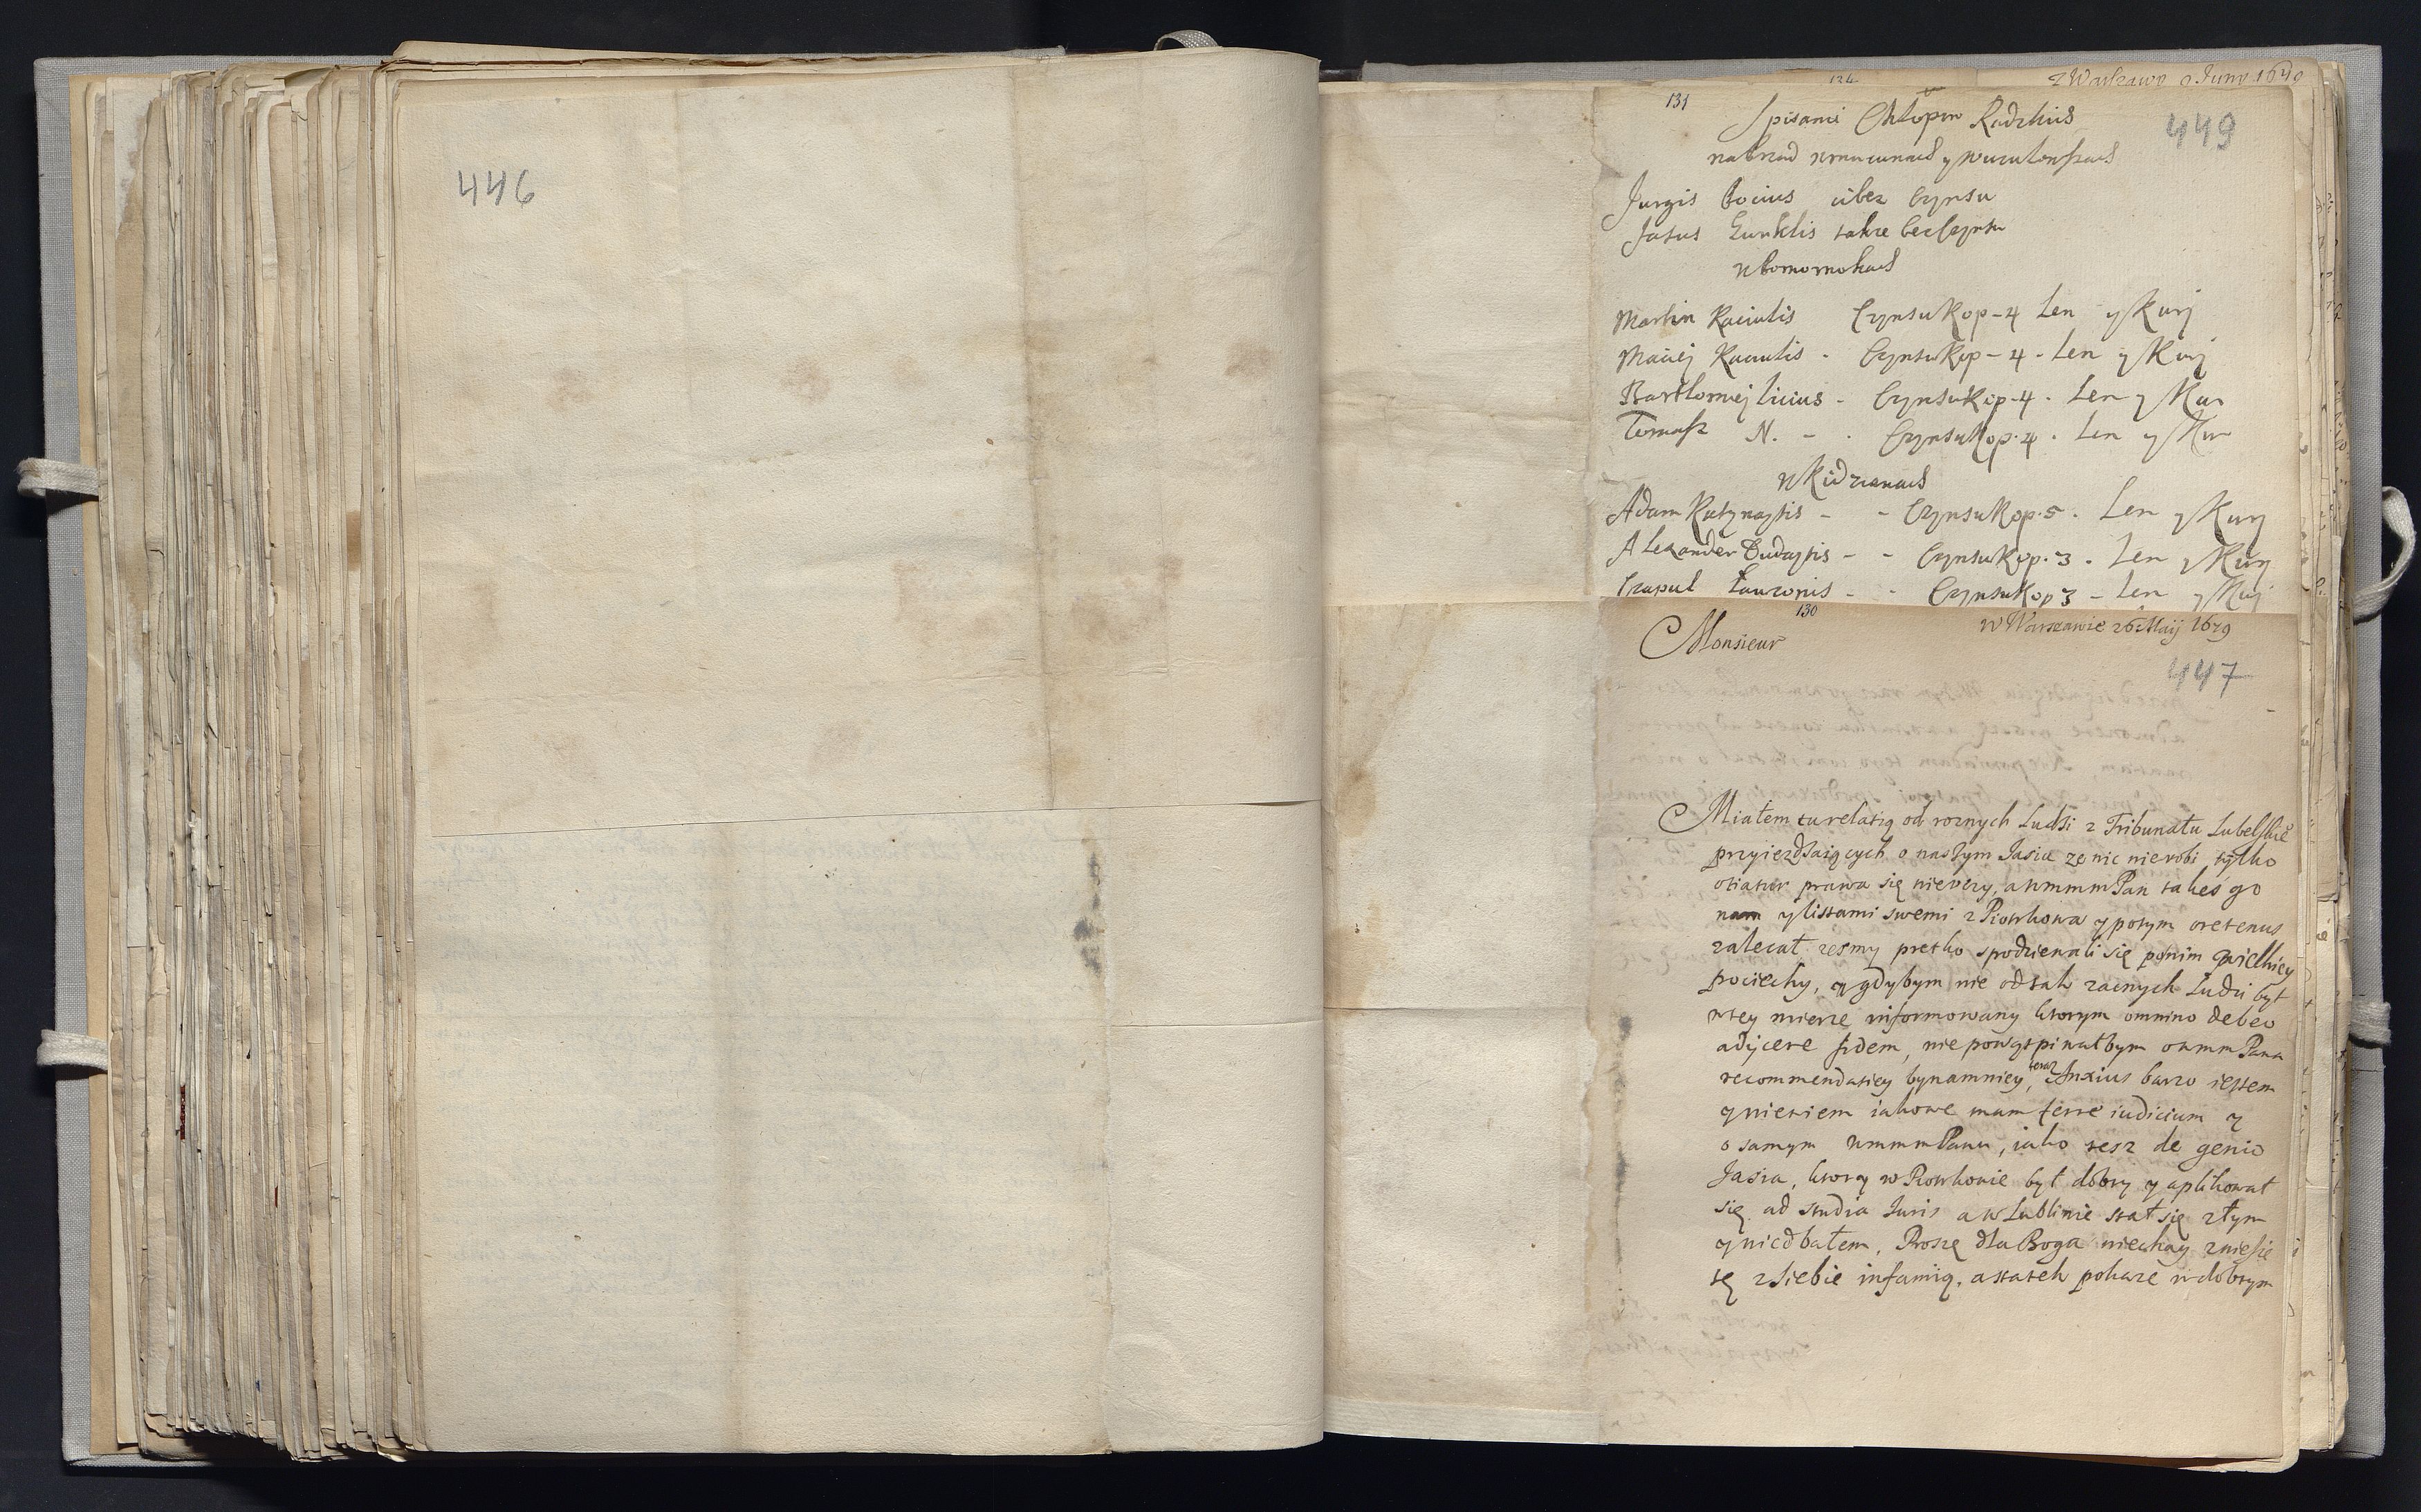 446
134
z Warszawy 9 Juny 1679
131
449
Spisanie Chłopow Radzkich
Jurgis Bocius bez Czynsu
Jasus Lunklis takze bez Czynsu
Martin Kaciulis Czynsu Kop - 4 Len y Kurj
Maciej Kaciulis - Czynsu Kop - 4 - Len y Kurj
Bartlomiej Licius - Czynsu Kop - 4 - Len y Kur
Tomasz N. - . Czynsu Kop. 4 . Len y Kur
w Kidzianach
Adam Ratynajtis - - Czynsu Kop. 5 . Len y Kurj
Alexander Dudajtis - - Czynsu Kop. 3 . Len y Kurj
Czapul Lauzonis - - Czynsu Kop 3 - Len y Kurj
130
w Warszawie 26 Maij 1679
Monsieur
447
Miałem tu relatią od roznych Ludzi z Tribunału Lubelskie
przyiezdzaiących o naszym Jasiu ze nic nie robi, tylko
otiatur prawa się nie uczy, a wmmm Pan takes go
nam y listami swemi z Piotrkowa y potym oretenus
zalecał zesmy prętko spodziewali się po nim wielkiey
pociechy, y gdybym nie od tak zacnych Ludzi był
w tey mierze informowany ktorym omnino debeo
adijcere fidem, nie powątpiwałbym o wmm Pana
recommendatiey bynamniey, teraz Anxius barzo iestem
y nie wiem iakowe mam ferre iudicium y
o samym wmmm Panu, iako tesz de genio
Jasia, ktory w Piotrkowie był dobry y aplikował
się ad studia Iuris a w Lublinie stał się złym
y niedbałem, Proszę dla Boga niechay zniesie
tę z siebie infamią, a statek pokaze w dobrym